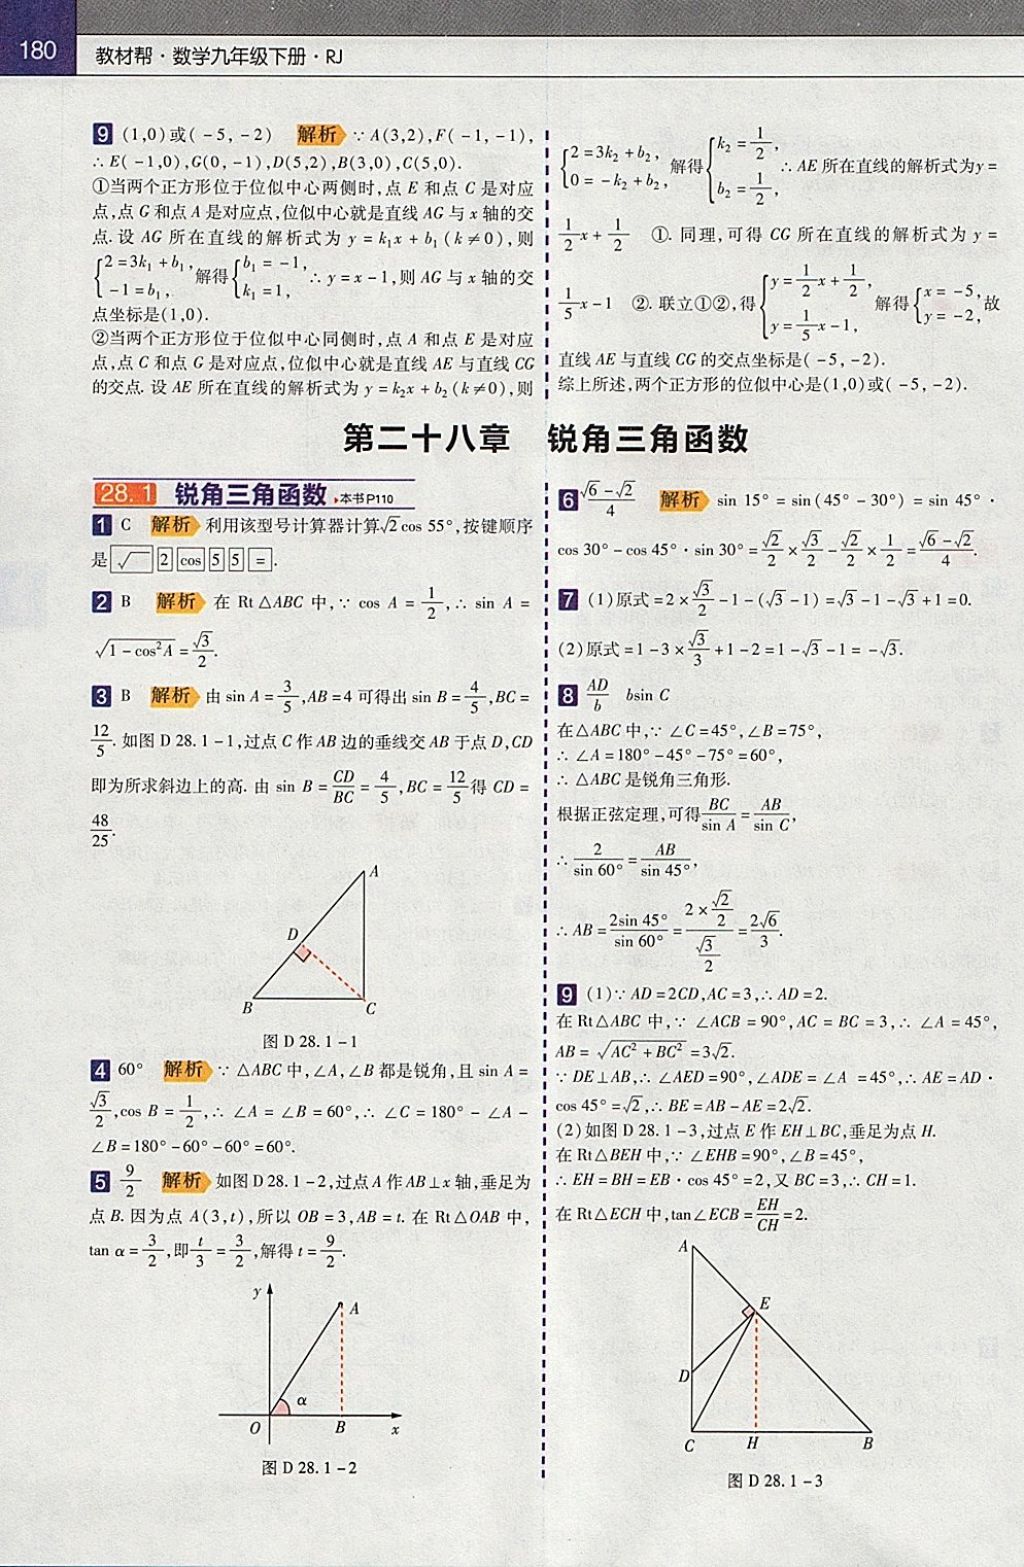 180
教材帮·数学九年级下册·RJ
9 (1,0)或(-5,-2) 解析 ∵A(3,2),F(-1,-1),
∴E(-1,0),G(0,-1),D(5,2),B(3,0),C(5,0).
①当两个正方形位于位似中心两侧时,点 E 和点 C 是对应
点,点 G 和点 A 是对应点,位似中心就是直线 AG 与 x 轴的交
点. 设 AG 所在直线的解析式为 y=k₁x+b₁(k≠0),则
{2=3k₁+b₁, -1=b₁, 解得{b₁=-1, k₁=1, ∴y=x-1,则 AG 与 x 轴的交
点坐标是(1,0).
②当两个正方形位于位似中心同侧时,点 A 和点 E 是对应
点,点 C 和点 G 是对应点,位似中心就是直线 AE 与直线 CG
的交点. 设 AE 所在直线的解析式为 y=k₂x+b₂(k≠0),则
{2=3k₂+b₂, 0=-k₂+b₂, 解得{k₂=1/2, b₂=1/2, ∴AE 所在直线的解析式为 y=
1/2x+1/2 ①. 同理,可得 CG 所在直线的解析式为 y=
1/5x-1 ②. 联立①②,得{y=1/2x+1/2, y=1/5x-1, 解得{x=-5, y=-2, 故
直线 AE 与直线 CG 的交点坐标是(-5,-2).
综上所述,两个正方形的位似中心是(1,0)或(-5,-2).
第二十八章 锐角三角函数
28.1 锐角三角函数 本书P110
1 C 解析 利用该型号计算器计算√2cos 55°,按键顺序
是 √ 2 cos 5 5 = .
2 B 解析 在 Rt△ABC 中,∵cos A=1/2,∴sin A=
√(1-cos²A)=√3/2.
3 B 解析 由 sin A=3/5,AB=4 可得出 sin B=4/5,BC=
12/5. 如图 D 28.1-1,过点 C 作 AB 边的垂线交 AB 于点 D,CD
即为所求斜边上的高. 由 sin B=CD/BC=4/5,BC=12/5得 CD=
48/25.
A
D
B
C
图 D 28.1-1
4 60° 解析 ∵△ABC 中,∠A,∠B 都是锐角,且 sin A=
√3/2,cos B=1/2,∴∠A=∠B=60°,∴∠C=180°-∠A-
∠B=180°-60°-60°=60°.
5 9/2 解析 如图 D 28.1-2,过点 A 作 AB⊥x 轴,垂足为
点 B. 因为点 A(3,t),所以 OB=3,AB=t. 在 Rt△OAB 中,
tan α=3/2,即t/3=3/2,解得 t=9/2.
y
A
α
O
B
x
图 D 28.1-2
6 (√6-√2)/4 解析 sin 15°=sin(45°-30°)=sin 45°·
cos 30°-cos 45°·sin 30°=√2/2×√3/2-√2/2×1/2=(√6-√2)/4.
7 (1)原式=2×√3/2-1-(√3-1)=√3-1-√3+1=0.
(2)原式=1-3×√3/3+1-2=1-√3-1=-√3.
8 AD/b bsin C
在△ABC 中,∵∠C=45°,∠B=75°,
∴∠A=180°-45°-75°=60°,
∴△ABC 是锐角三角形.
根据正弦定理,可得BC/sin A=AB/sin C,
∴2/sin 60°=AB/sin 45°,
∴AB=2sin 45°/sin 60°=(2×√2/2)/(√3/2)=2√6/3.
9 (1)∵AD=2CD,AC=3,∴AD=2.
在 Rt△ABC 中,∵∠ACB=90°,AC=BC=3,∴∠A=45°,
AB=√(AC²+BC²)=3√2.
∵DE⊥AB,∴∠AED=90°,∠ADE=∠A=45°,∴AE=AD·
cos 45°=√2,∴BE=AB-AE=2√2.
(2)如图 D 28.1-3,过点 E 作 EH⊥BC,垂足为点 H.
在 Rt△BEH 中,∵∠EHB=90°,∠B=45°,
∴EH=BH=EB·cos 45°=2,又 BC=3,∴CH=1.
在 Rt△ECH 中,tan∠ECB=EH/CH=2.
A
E
D
C
H
B
图 D 28.1-3